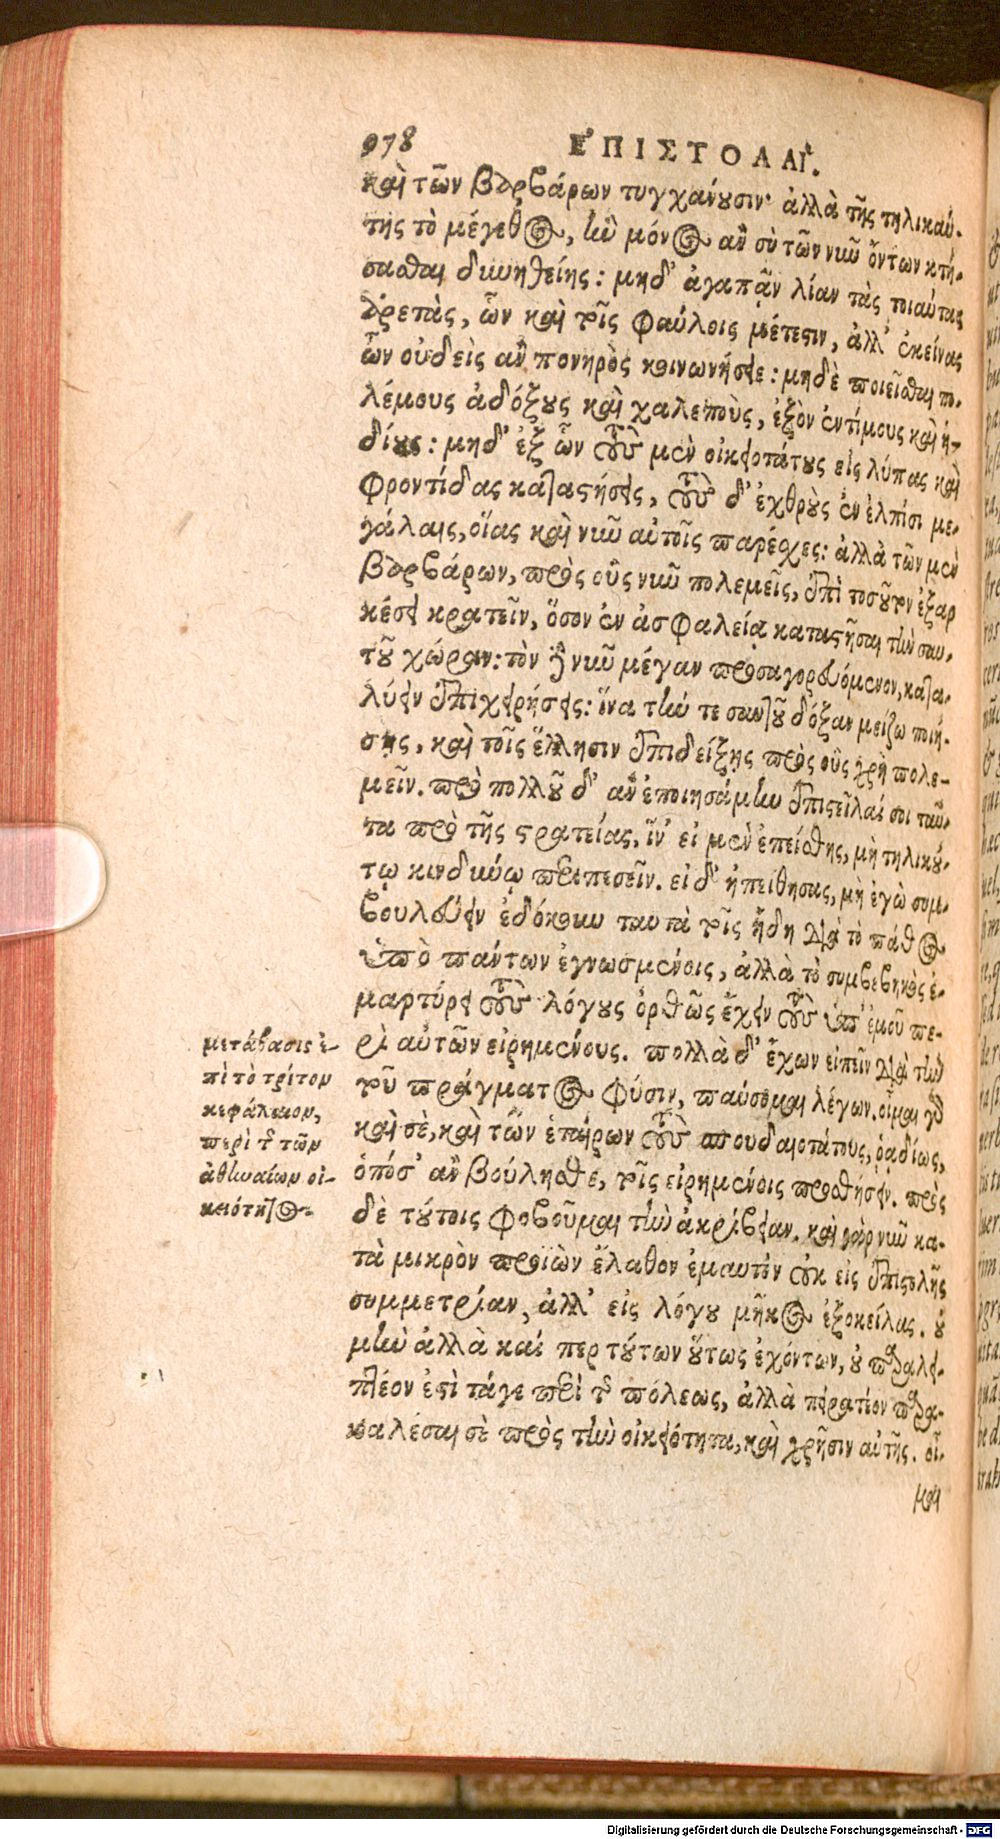 978 ΕΠΙΣΤΟΛΑΙ.
καὶ τῶν βαρβάρων τυγχάνουσιν· ἀλλὰ τῆς τηλικαύ-
της τὸ μέγεθος, ἣν μόνος ἂν σὺ τῶν νῦν ὄντων κτή-
σασθαι δυνηθείης: μηδ' ἀγαπᾶν λίαν τὰς τοιαύτας
ἀρετὰς, ὧν καὶ τοῖς φαύλοις μέτεστιν, ἀλλ' ἐκείνας
ὧν οὐδεὶς ἂν πονηρὸς κοινωνήσειε: μηδὲ ποιεῖσθαι πο-
λέμους ἀδόξους καὶ χαλεποὺς, ἐξὸν ἐντίμους καὶ ῥᾳ-
δίους: μηδ' ἐξ ὧν τοὺς μὲν οἰκειοτάτους εἰς λύπας καὶ
φροντίδας καταστήσεις, τοὺς δ' ἐχθροὺς ἐν ἐλπίσι με-
γάλαις, οἵας καὶ νῦν αὐτοῖς παρέσχες: ἀλλὰ τῶν μὲν
βαρβάρων, πρὸς οὓς νῦν πολεμεῖς, ἐπὶ τοσοῦτον ἐξαρ
κέσει κρατεῖν, ὅσον ἐν ἀσφαλείᾳ καταστῆσαι τὴν σαυ-
τοῦ χώραν: τὸν δὲ νῦν μέγαν προσαγορευόμενον, κατα-
λύειν ἐπιχειρήσεις: ἵνα τήν τε σαυτοῦ δόξαν μείζω ποιή-
σῃς, καὶ τοῖς ἕλλησιν ἐπιδείξῃς πρὸς οὓς χρὴ πολε-
μεῖν. πρὸ πολλοῦ δ' ἂν ἐποιησάμην ἐπιστεῖλαί σοι ταῦ-
τα πρὸ τῆς στρατείας, ἵν' εἰ μὲν ἐπείσθης, μὴ τηλικού-
τῳ κινδύνῳ περιπεσεῖν. εἰ δ' ἠπείθησας, μὴ ἐγὼ συμ-
βουλεύειν ἐδόκουν ταυτὰ τοῖς ἤδη διὰ τὸ πάθος
ὑπὸ πάντων ἐγνωσμένοις, ἀλλὰ τὸ συμβεβηκὸς ἐ-
μαρτύρει τοὺς λόγους ὀρθῶς ἔχειν τοὺς ὑπ' ἐμοῦ πε-
ρὶ αὐτῶν εἰρημένους. πολλὰ δ' ἔχων εἰπεῖν διὰ τὴν
τοῦ πράγματος φύσιν, παύσομαι λέγων. οἶμαι γὰρ
καὶ σὲ, καὶ τῶν ἑταίρων τοὺς σπουδαιοτάτους, ῥᾳδίως,
ὁπόσ' ἂν βούλησθε, τοῖς εἰρημένοις προσθήσειν. πρὸς
δὲ τούτοις φοβοῦμαι τὴν ἀκρίβειαν. καὶ γὰρ νῦν κα-
τὰ μικρὸν προϊὼν ἔλαθον ἐμαυτὸν οὐκ εἰς ἐπιστολῆς
συμμετρίαν, ἀλλ' εἰς λόγου μῆκος ἐξοκείλας. οὐ
μὴν ἀλλὰ καί περ τούτων οὕτως ἐχόντων, οὐ παραλει-
πτέον ἐστὶ τάγε περὶ τῆς πόλεως, ἀλλὰ πειρατέον παρα-
καλέσαι σὲ πρὸς τὴν οἰκειότητα, καὶ χρῆσιν αὐτῆς. οἶ-
μαι
μετάβασις ἐ-
πὶ τὸ τρίτον
κεφάλαιον,
περὶ τῆς τῶν
ἀθηναίων οἰ-
κειότητος